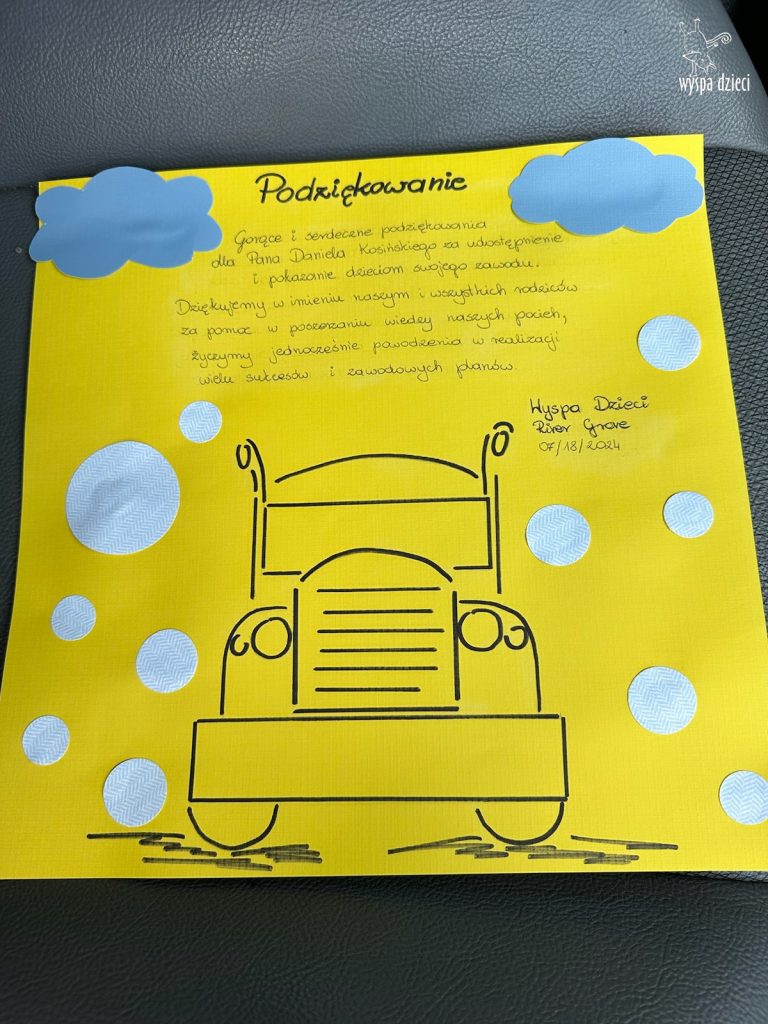 wyspa dzieci
Podziękowanie
Gorące i serdeczne podziękowania
dla Pana Daniela Kosińskiego za udostępnienie
i pokazanie dzieciom swojego zawodu.
Dziękujemy w imieniu naszym i wszystkich rodziców
za pomoc w poszerzaniu wiedzy naszych pociech,
życzymy jednocześnie powodzenia w realizacji
wielu sukcesów i zawodowych planów.
Wyspa Dzieci
River Grove
07/18/2024